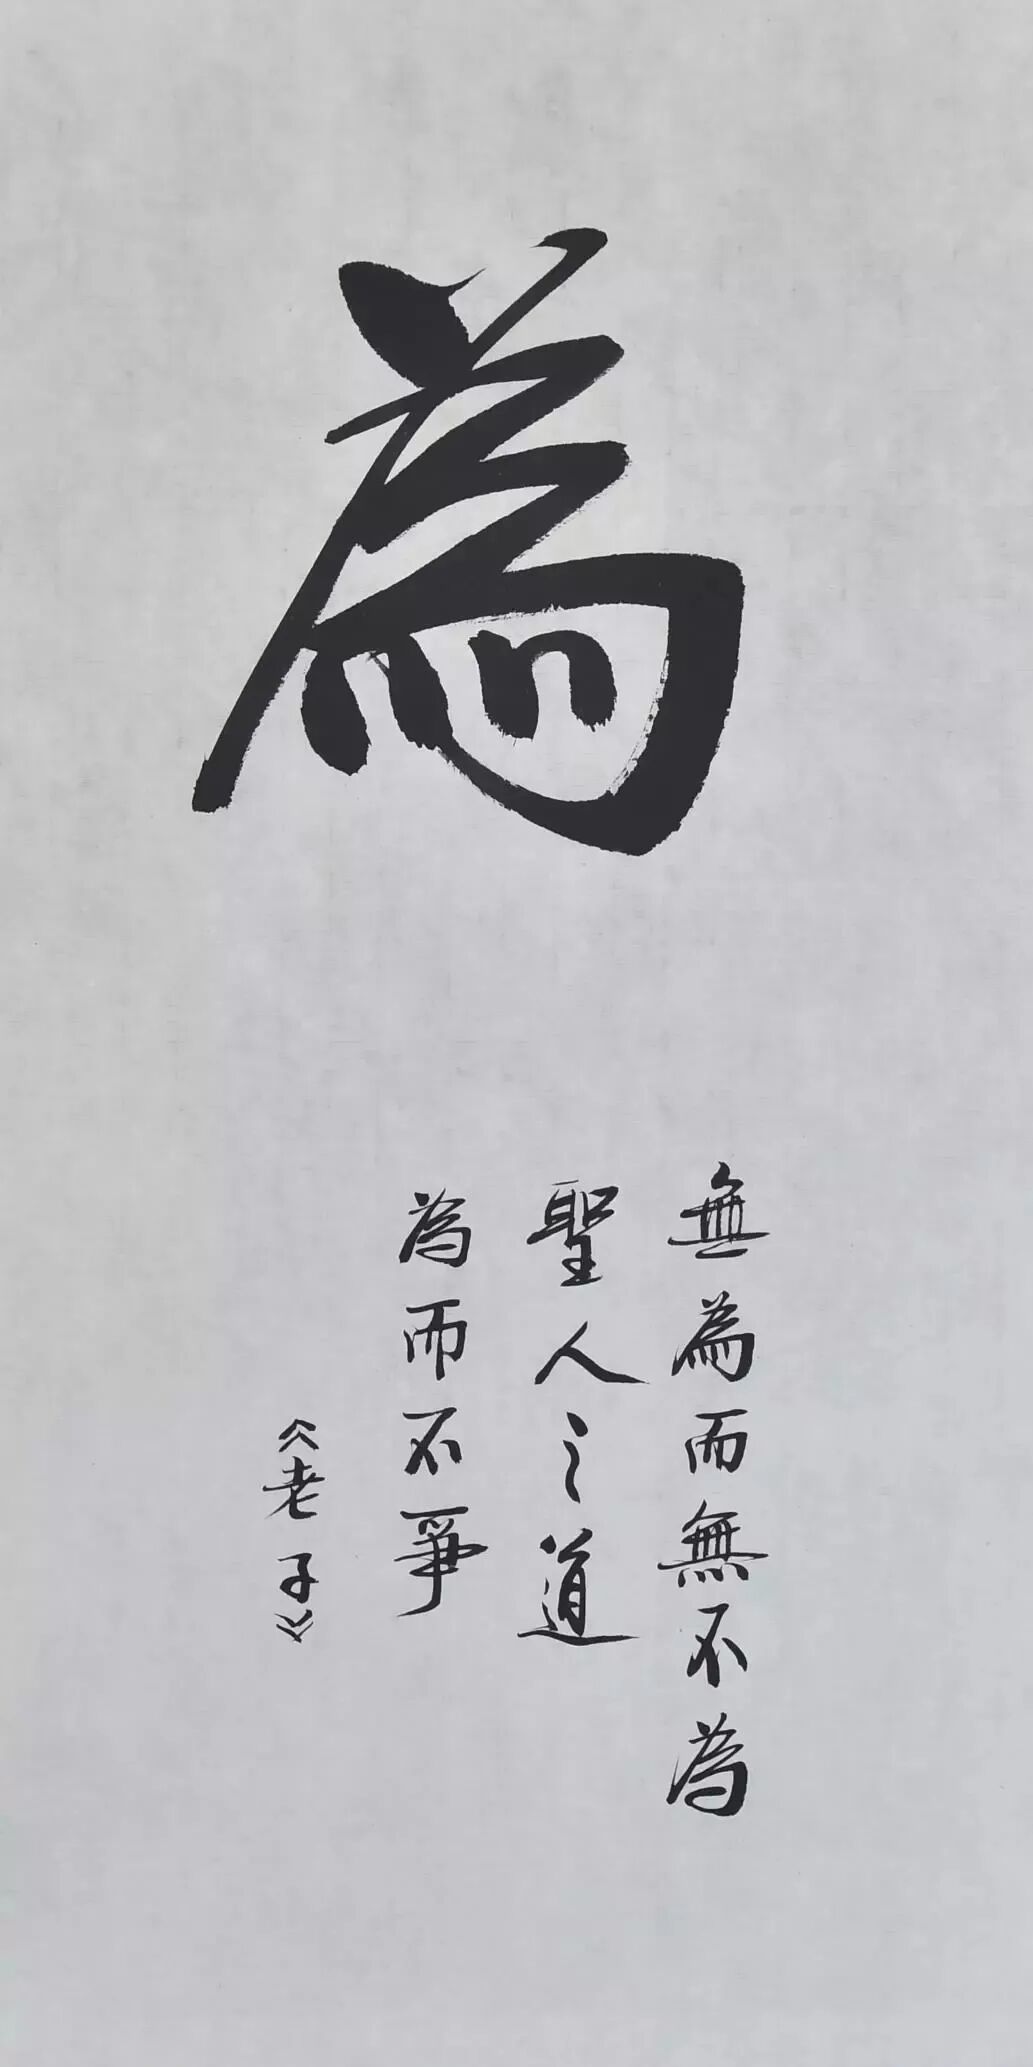 為
無為而無不為
聖人之道
為而不爭
《老子》